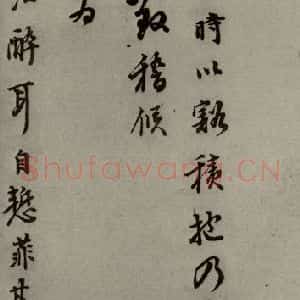 時以豁積抱乃
致稽候
為
醉耳自菲
Shufawang.CN